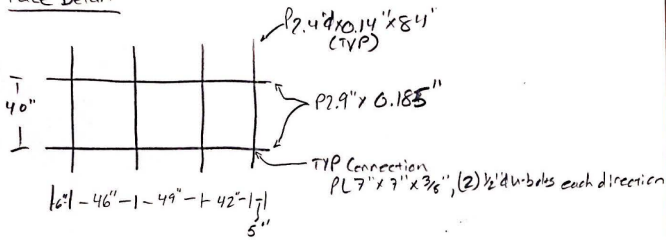 Face Detail
P2.4"ϕx0.14"x84"
(TYP)
40"
P2.9"x 0.185"
TYP Connection
PL7"x7"x3/8", (2) 1/2"ϕ u-bolts each direction
6" - 46" - 49" - 42"
5"